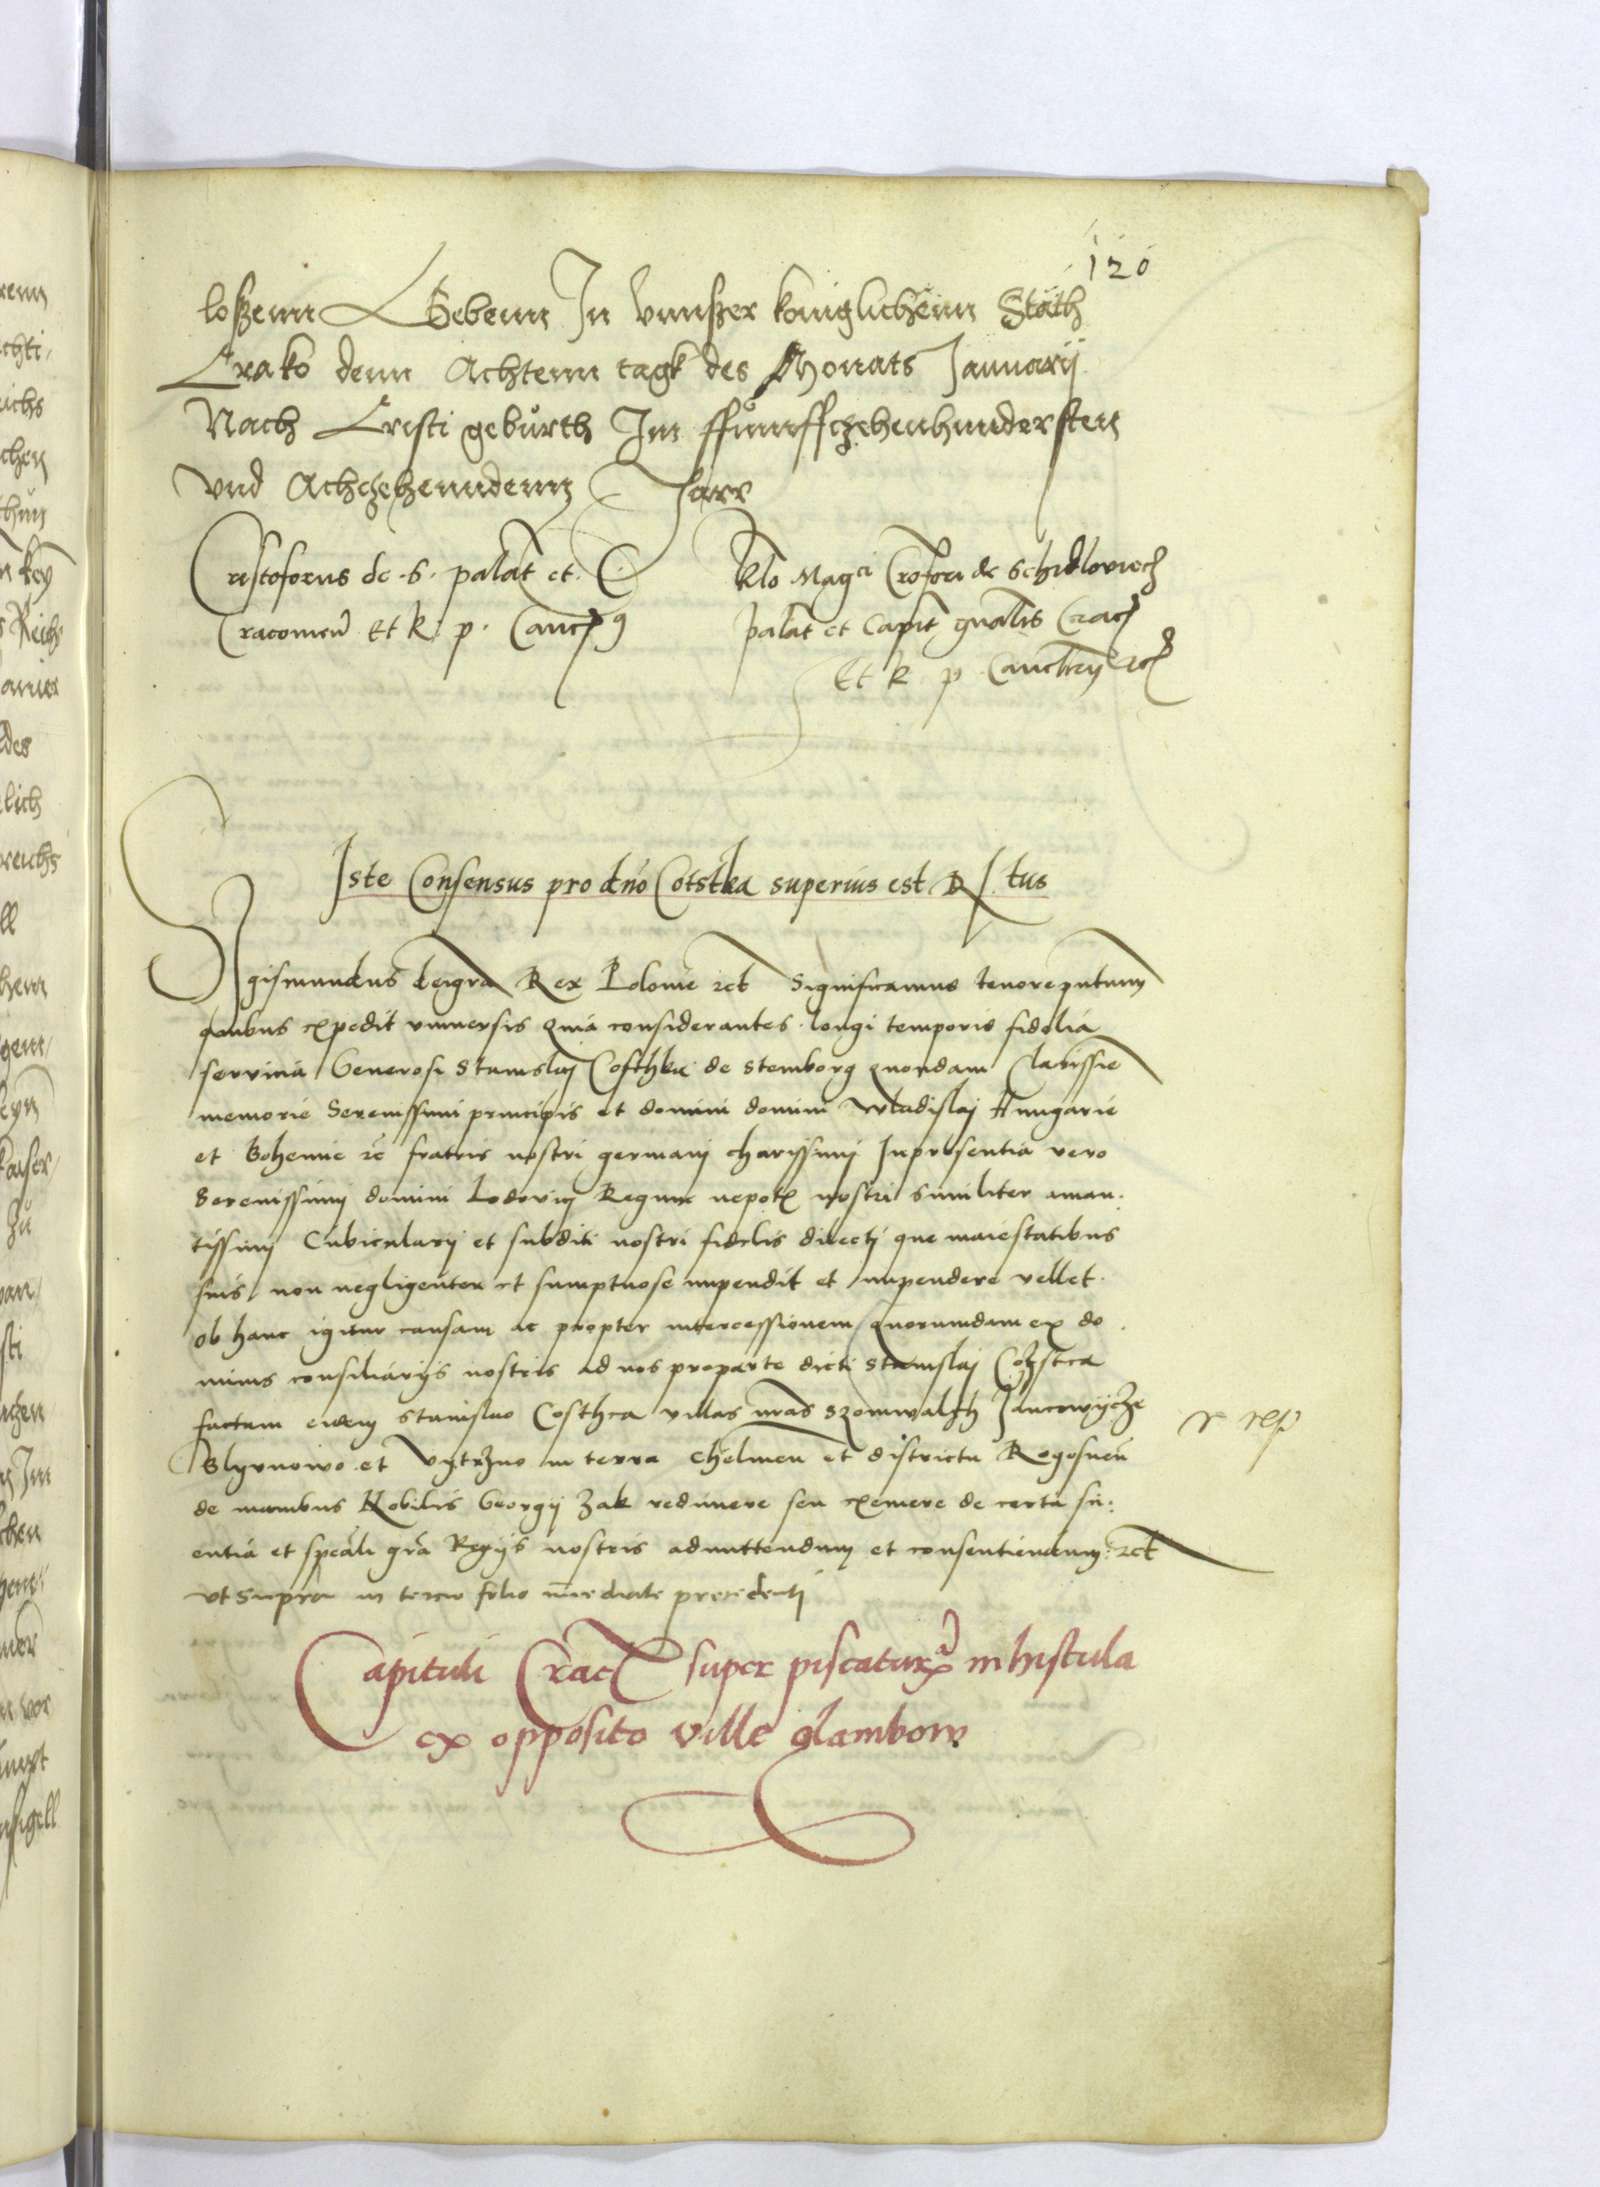 120
loßenn Gebenn In vnnßer koniglichenn Stath
Crako denn Achtenn tagk des Monats Januarij
Nach Cristi geburth Im ffunffczehenhundersten
vnd Achczehenndenn Jarr
Cristoforus de .S. palat et. C. Rlo Magci Crofori de Schidloviecz
Cracovien Et R. p. Canc palat et Capit gnalis Crac
Et R p Cancrij etc
Iste Consensus pro dno Cotstka superius est R tus
Sigismundus dei gra Rex Polonie etc Significamus tenore pntium
quibus expedit vniversis quia considerantes longi temporis fidelia
servicia Generosi Stanislai Costhka de Stemborg quondam Clarissie
memorie Serenissimi principis et domini domini Wladislaj Hungarie
et Bohemie etc fratris nostri germanj charissimj Inpresentia vero
Serenissimj domini Lodovicj Regum nepot nostri similiter aman.
tissimj Cubicularij et subditi nostri fidelis dilectj que maiestatibus
suis non negligenter et sumptuose impendit et impendere vellet.
ob hanc igitur causam ac propter intercessionem quorumdam ex do
minis consiliarijs nostris ad nos pro parte dicti Stanislaj Cozstca
factam eidem Stanislao Costhca villas nras Szomwalth Jancowycze
Slyvnowo et Vytrzno in terra Chelmen et districtu Rogosnen
r res
de manibus Nobilis Georgij Zak redimere seu exemere de certa sci:
entia et speali gra Regijs nostris admittendum et consentiendum: etc
vt supra in tercio folio immediate precedentj
Capituli Crac super piscatura in histula
ex opposito ville glambow